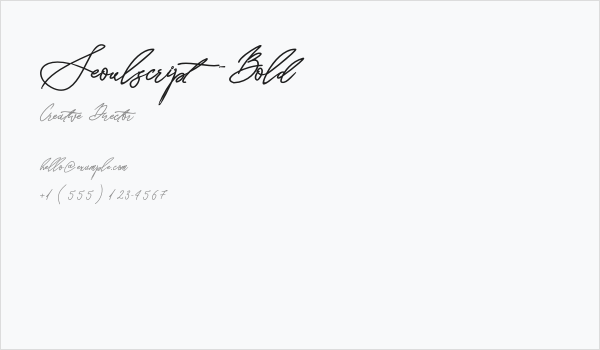 Seoulscript-Bold
Creative Director
hello@example.com
+1 (555) 123-4567